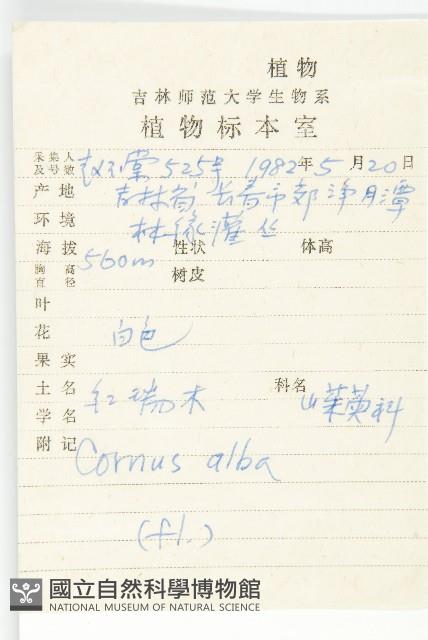 植物
吉林师范大学生物系
植物标本室
采集人及号数 赵 棠 525号 1982年5月20日
产地 吉林省长春市郊净月潭
环境 林缘灌丛
海拔 560m 性状 体高
胸高直径 树皮
叶
花 白色
果实
土名 红瑞木 科名 山茱萸科
学名
附记 Cornus alba
(fl.)
國立自然科學博物館
NATIONAL MUSEUM OF NATURAL SCIENCE